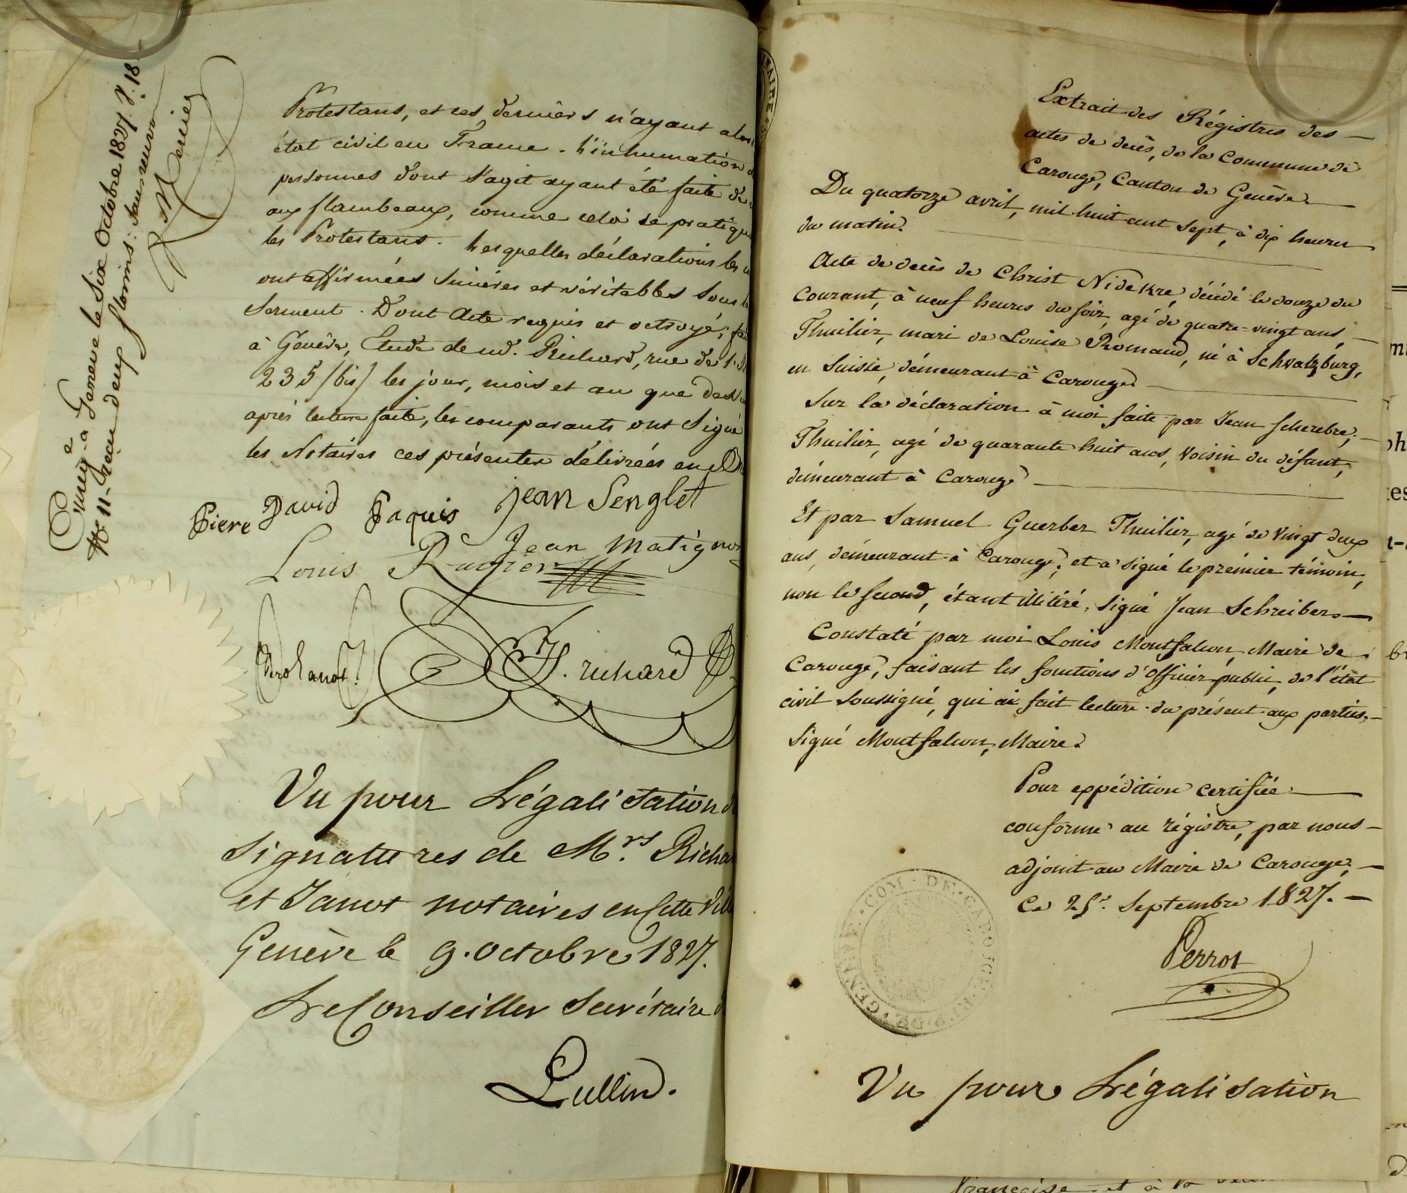 Protestans, et ces derniers n'ayant alors
état civil en France. L'inhumation
personnes dont s'agit ayant été faite de
aux flambeaux, comme cela se pratiqu
les Protestans. Lesquelles déclarations les
ont affirmées sincères et véritables sous
Serment. Dont Acte requis et octroyé,
à Genève, Etude de md. Richard, rue de
235 (bis) les jour, mois et an que dessus
après lecture faite, les comparants ont signé
les Notaires ces présentes délivrées en
Piere David Jaquis Jean Senglet
Louis Jean Matignon
J. richard
Janot
Vu pour Légalisation
signatures de Mrs. Richa
et Janot notaires en cette Ville
Genève le 9. octobre 1827.
Le Conseiller Secrétaire
Lullin.
Enreg.é à Genève le Six Octobre 1827. V. 18
No 11. Reçu deux florins
Extrait des Régistres des
actes de decès, de la Commune de
Carouge, Canton de Genève
Du quatorze avril, mil huit cent sept, à dix heures
du matin.
Acte de decès de Christ Nidekre, décédé le douze du
Courant, à neuf heures du soir, agé de quatre-vingt ans,
Thuilier, mari de Louise Romand, né à Schvatzburg,
en Suisse, démeurant à Carouge
Sur la déclaration à moi faite par Jean Schrebre,
Thuilier, agé de quarante huit ans, voisin du défunt,
démeurant à Carouge
Et par Samuel Guerber Thuilier, agé de vingt deux
ans, démeurant à Carouge; et a signé le prémier témoin,
non le second, étant illitéré, signé Jean Schreiber.
Constaté par moi Louis Montfalcon, Maire de
Carouge, faisant les fonctions d'officier public, de l'état
civil soussigné, qui ai fait lecture du présent aux parties,
signé Montfalcon, Maire.
Pour expédition certifiée
conforme au régistre, par nous
adjoint au Maire de Carouge,
Ce 25e. Septembre 1827.
Perrot
COM. DE CAROUGE. R. ET P. DE GENEVE.
Vu pour Légalisation